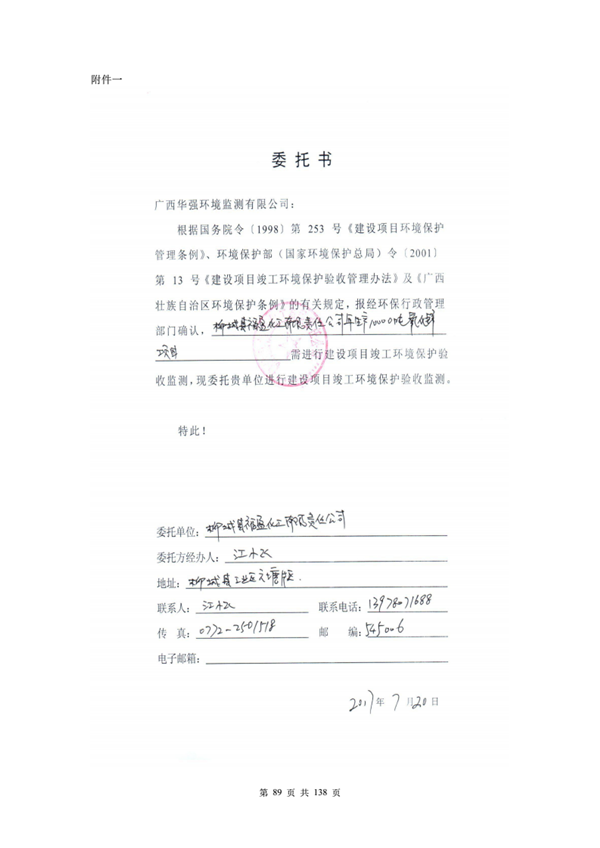 附件一
委 托 书
广西华强环境监测有限公司：
根据国务院令〔1998〕第 253 号《建设项目环境保护
管理条例》、环境保护部（国家环境保护总局）令〔2001〕
第 13 号《建设项目竣工环境保护验收管理办法》及《广西
壮族自治区环境保护条例》的有关规定，报经环保行政管理
部门确认，柳城县 化工有限责任公司年生产10000吨氧化锌
项目 需进行建设项目竣工环境保护验
收监测，现委托贵单位进行建设项目竣工环境保护验收监测。
特此！
委托单位：柳城县 化工有限责任公司
委托方经办人：江
地址：柳城县工业区 塘片区
联系人：江 联系电话：13978071688
传 真：0772-2501518 邮 编：545006
电子邮箱：
2017年 7 月 20 日
第 89 页 共 138 页